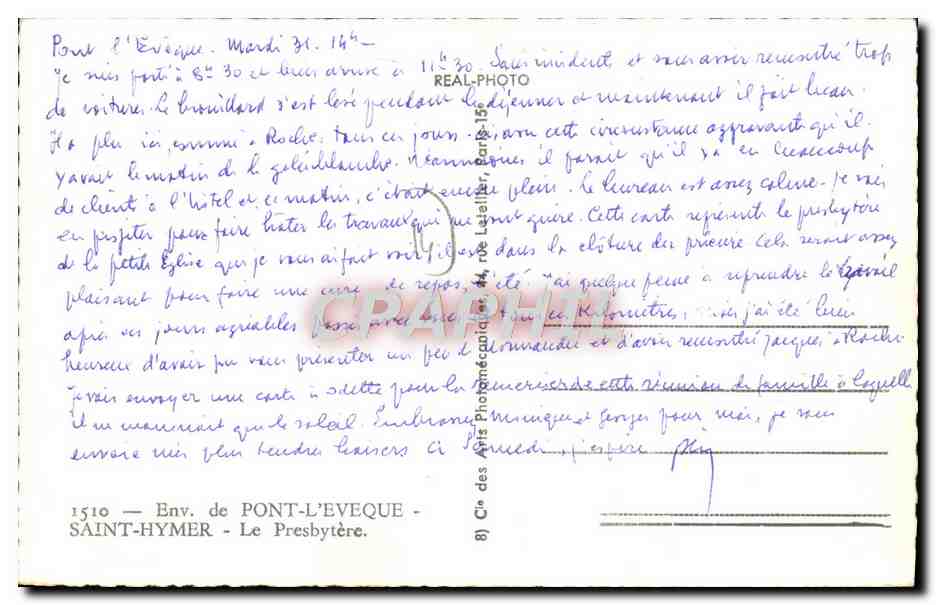 Pont l'Evêque. Mardi 31. 14h
Je suis parti à 8h 30 et bien arrivé à 11h 30. Sans incidents et sans avoir rencontré trop
REAL-PHOTO
de voitures. Le brouillard s'est levé pendant le déjeuner et maintenant il fait beau.
Il a plu ici, comme à Roche. tous ces jours. avec cette circonstance aggravante qu'il
y avait le matin de la gelée blanche. Néanmoins il parait qu'il y a eu beaucoup
de clients à l'hôtel et ce matin, c'était encore plein. Le bureau est assez calme. Je vais
en profiter pour faire hâter les travaux qui ne vont guère. Cette carte représente le presbytère
de la petite Eglise que je vous ai fait voir il est dans la clôture du prieuré cela serait assez
plaisant pour faire une cure de repos, l'été. J'ai quelque peine à reprendre le travail
après ces jours agréables passés avec kilomètres, mais j'ai été bien
heureux d'avoir pu vous présenter un peu de Normandie et d'avoir rencontré Jacques à Roche
Je vais envoyer une carte à Odette pour la remercier de cette réunion de famille à laquelle
il ne manquait que le soleil. Embrassez Monique et Georges pour moi, je vous
envoie mes plus tendres baisers à Samedi, j'espère
(4)
CRAPHIL
1510 — Env. de PONT-L'EVEQUE -
SAINT-HYMER - Le Presbytère.
8) Cie des Arts Photomécaniques, 44, rue Letellier, Paris-15e